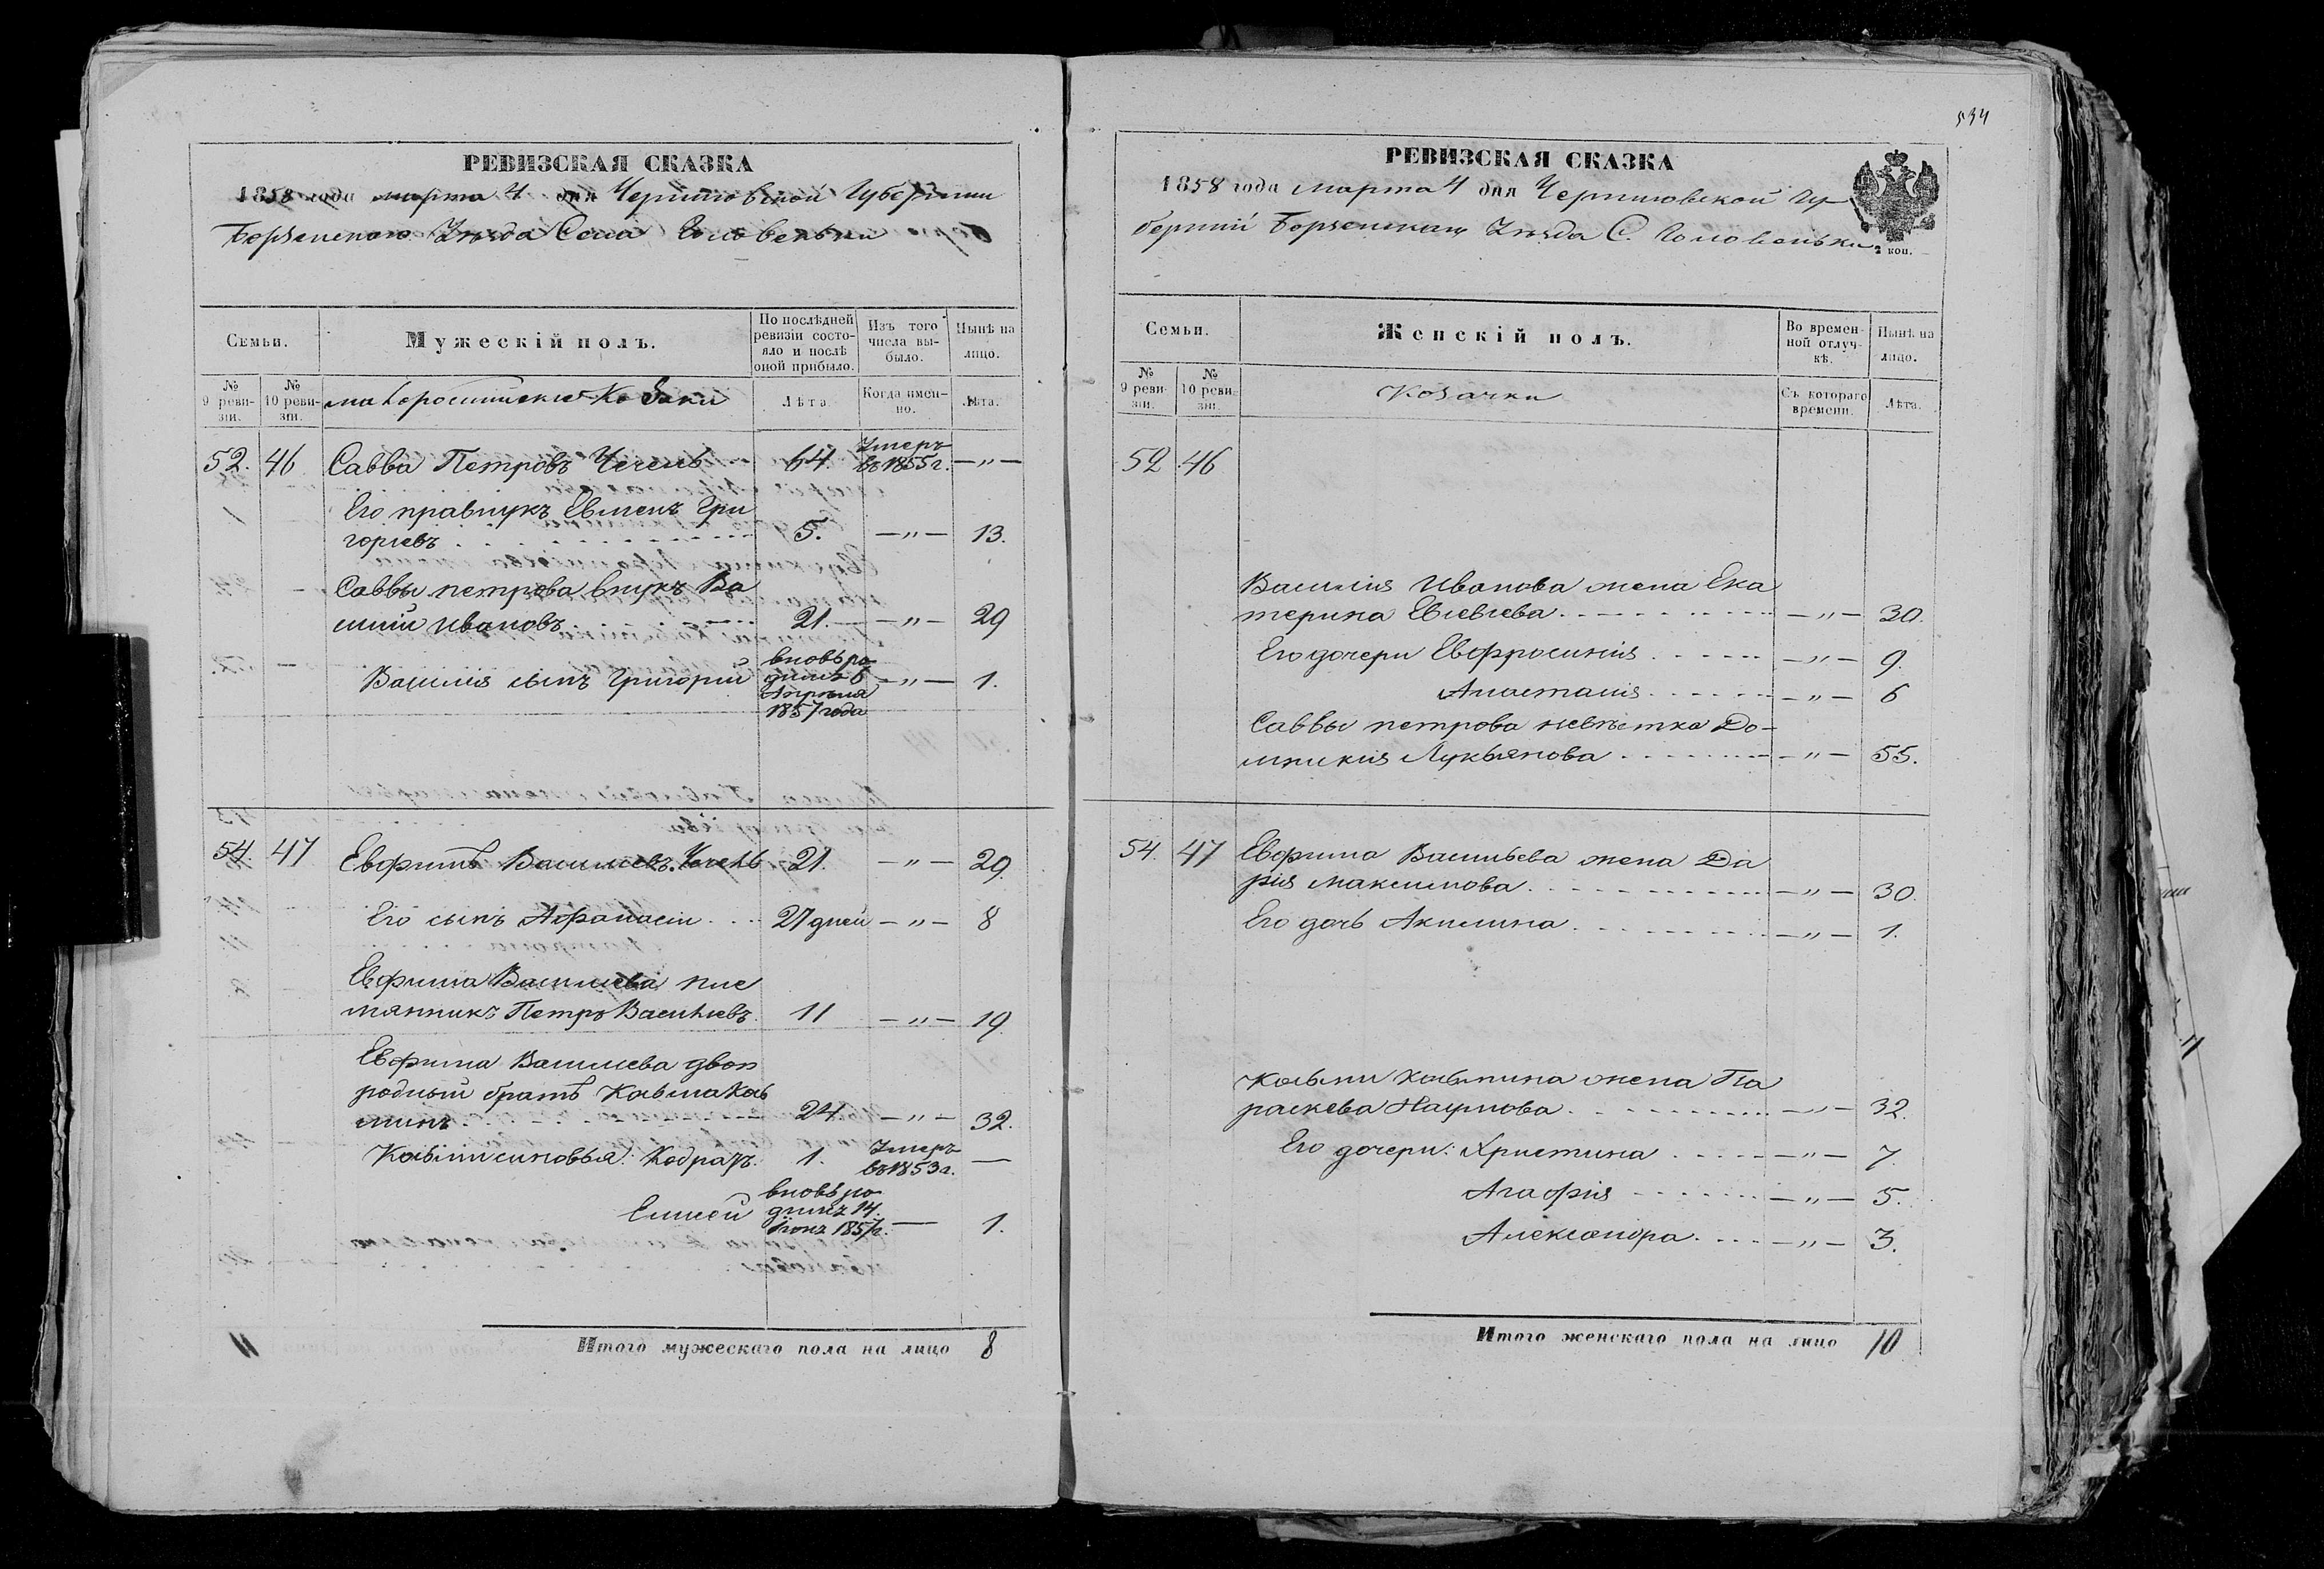 534
РЕВИЗСКАЯ СКАЗКА
1858 года марта 4 дня Черниговской Губернии
Борзенского Уезда Села Головеньки
Семьи.
Мужескій полъ.
По послѣдней ревизіи состояло и послѣ оной прибыло.
Изъ того числа выбыло.
Нынѣ на лицо.
№ 9 ревизіи.
№ 10 ревизіи.
малороссийские Козаки
Лѣта
Когда именно.
Лѣта.
52. 46 Савва Петровъ Чечель 64. Умеръ въ 1855 г. — " —
Его правнукъ Евменъ Гри
горіевъ 5. — " — 13.
Саввы петрова внукъ Ва
силій Ивановъ 21. — " — 29
Василія сынъ Григорій вновь ро
дилъ 6 — " — 1.
Апреля
1857 года
54. 47 Евфимъ Василіевъ Чечель 21. — " — 29.
Его сынъ Афанасій 27 дней — " — 8
Евфима Василиева пле
мянникъ Петръ Василиевъ 11 — " — 19.
Евфима Василиева двою
родный братъ Козьма Козь
минъ 24. — " — 32.
Козьми синовья: Кодратъ. 1. Умеръ въ 1853 г. —
Елисей вновь ро
дилъ 14.
Іюня 1857 г. — 1.
Итого мужескаго пола на лицо 8
РЕВИЗСКАЯ СКАЗКА
1858 года марта 4 дня Черниговской Гу
берніи Борзенскаго Уезда С. Головеньки
2 коп.
Семьи.
Женскій полъ.
Во временной отлучкѣ.
Нынѣ на лицо.
№ 9 ревизіи.
№ 10 ревизіи.
Козачки
Съ котораго времени.
Лѣта.
52 46
Василія Иванова жена Ека
терина Евсевіева — " — 30.
Его дочери Евфросинія — " — 9.
Анастасія — " — 6
Саввы петрова невѣстка До-
мникія Лукьянова — " — 55.
54. 47 Евфима Васильева жена Да
рія Максимова — " — 30.
Его дочь Акилина — " — 1.
Козьми Козьмина жена Па
раскева Наумова — " — 32.
Его дочери: Христина — " — 7.
Агафія — " — 5.
Александра — " — 3.
Итого женскаго пола на лицо 10